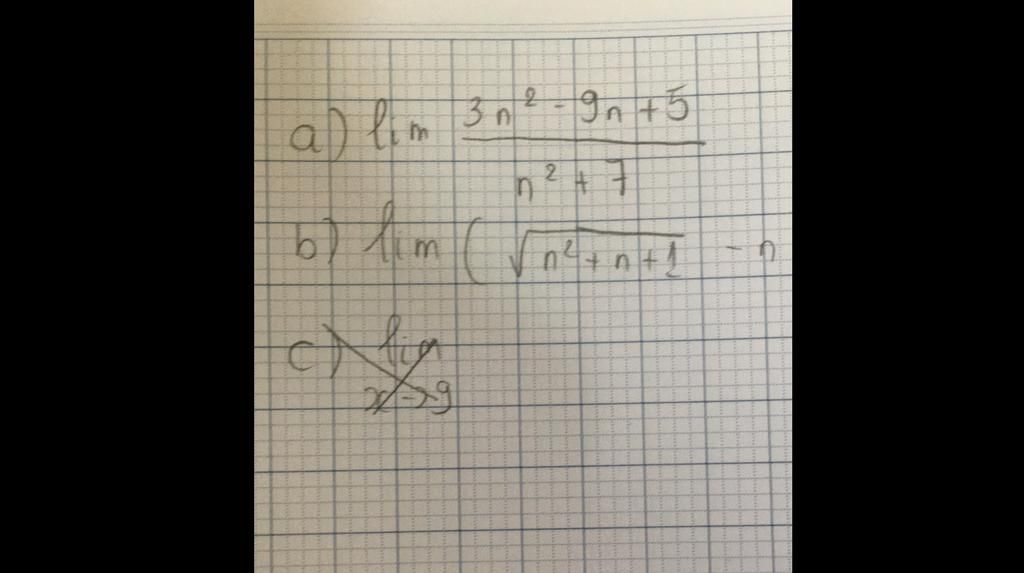 a) lim (3n² - 9n + 5) / (n² + 7)
b) lim ( √(n² + n + 1) - n
c) lim x→9